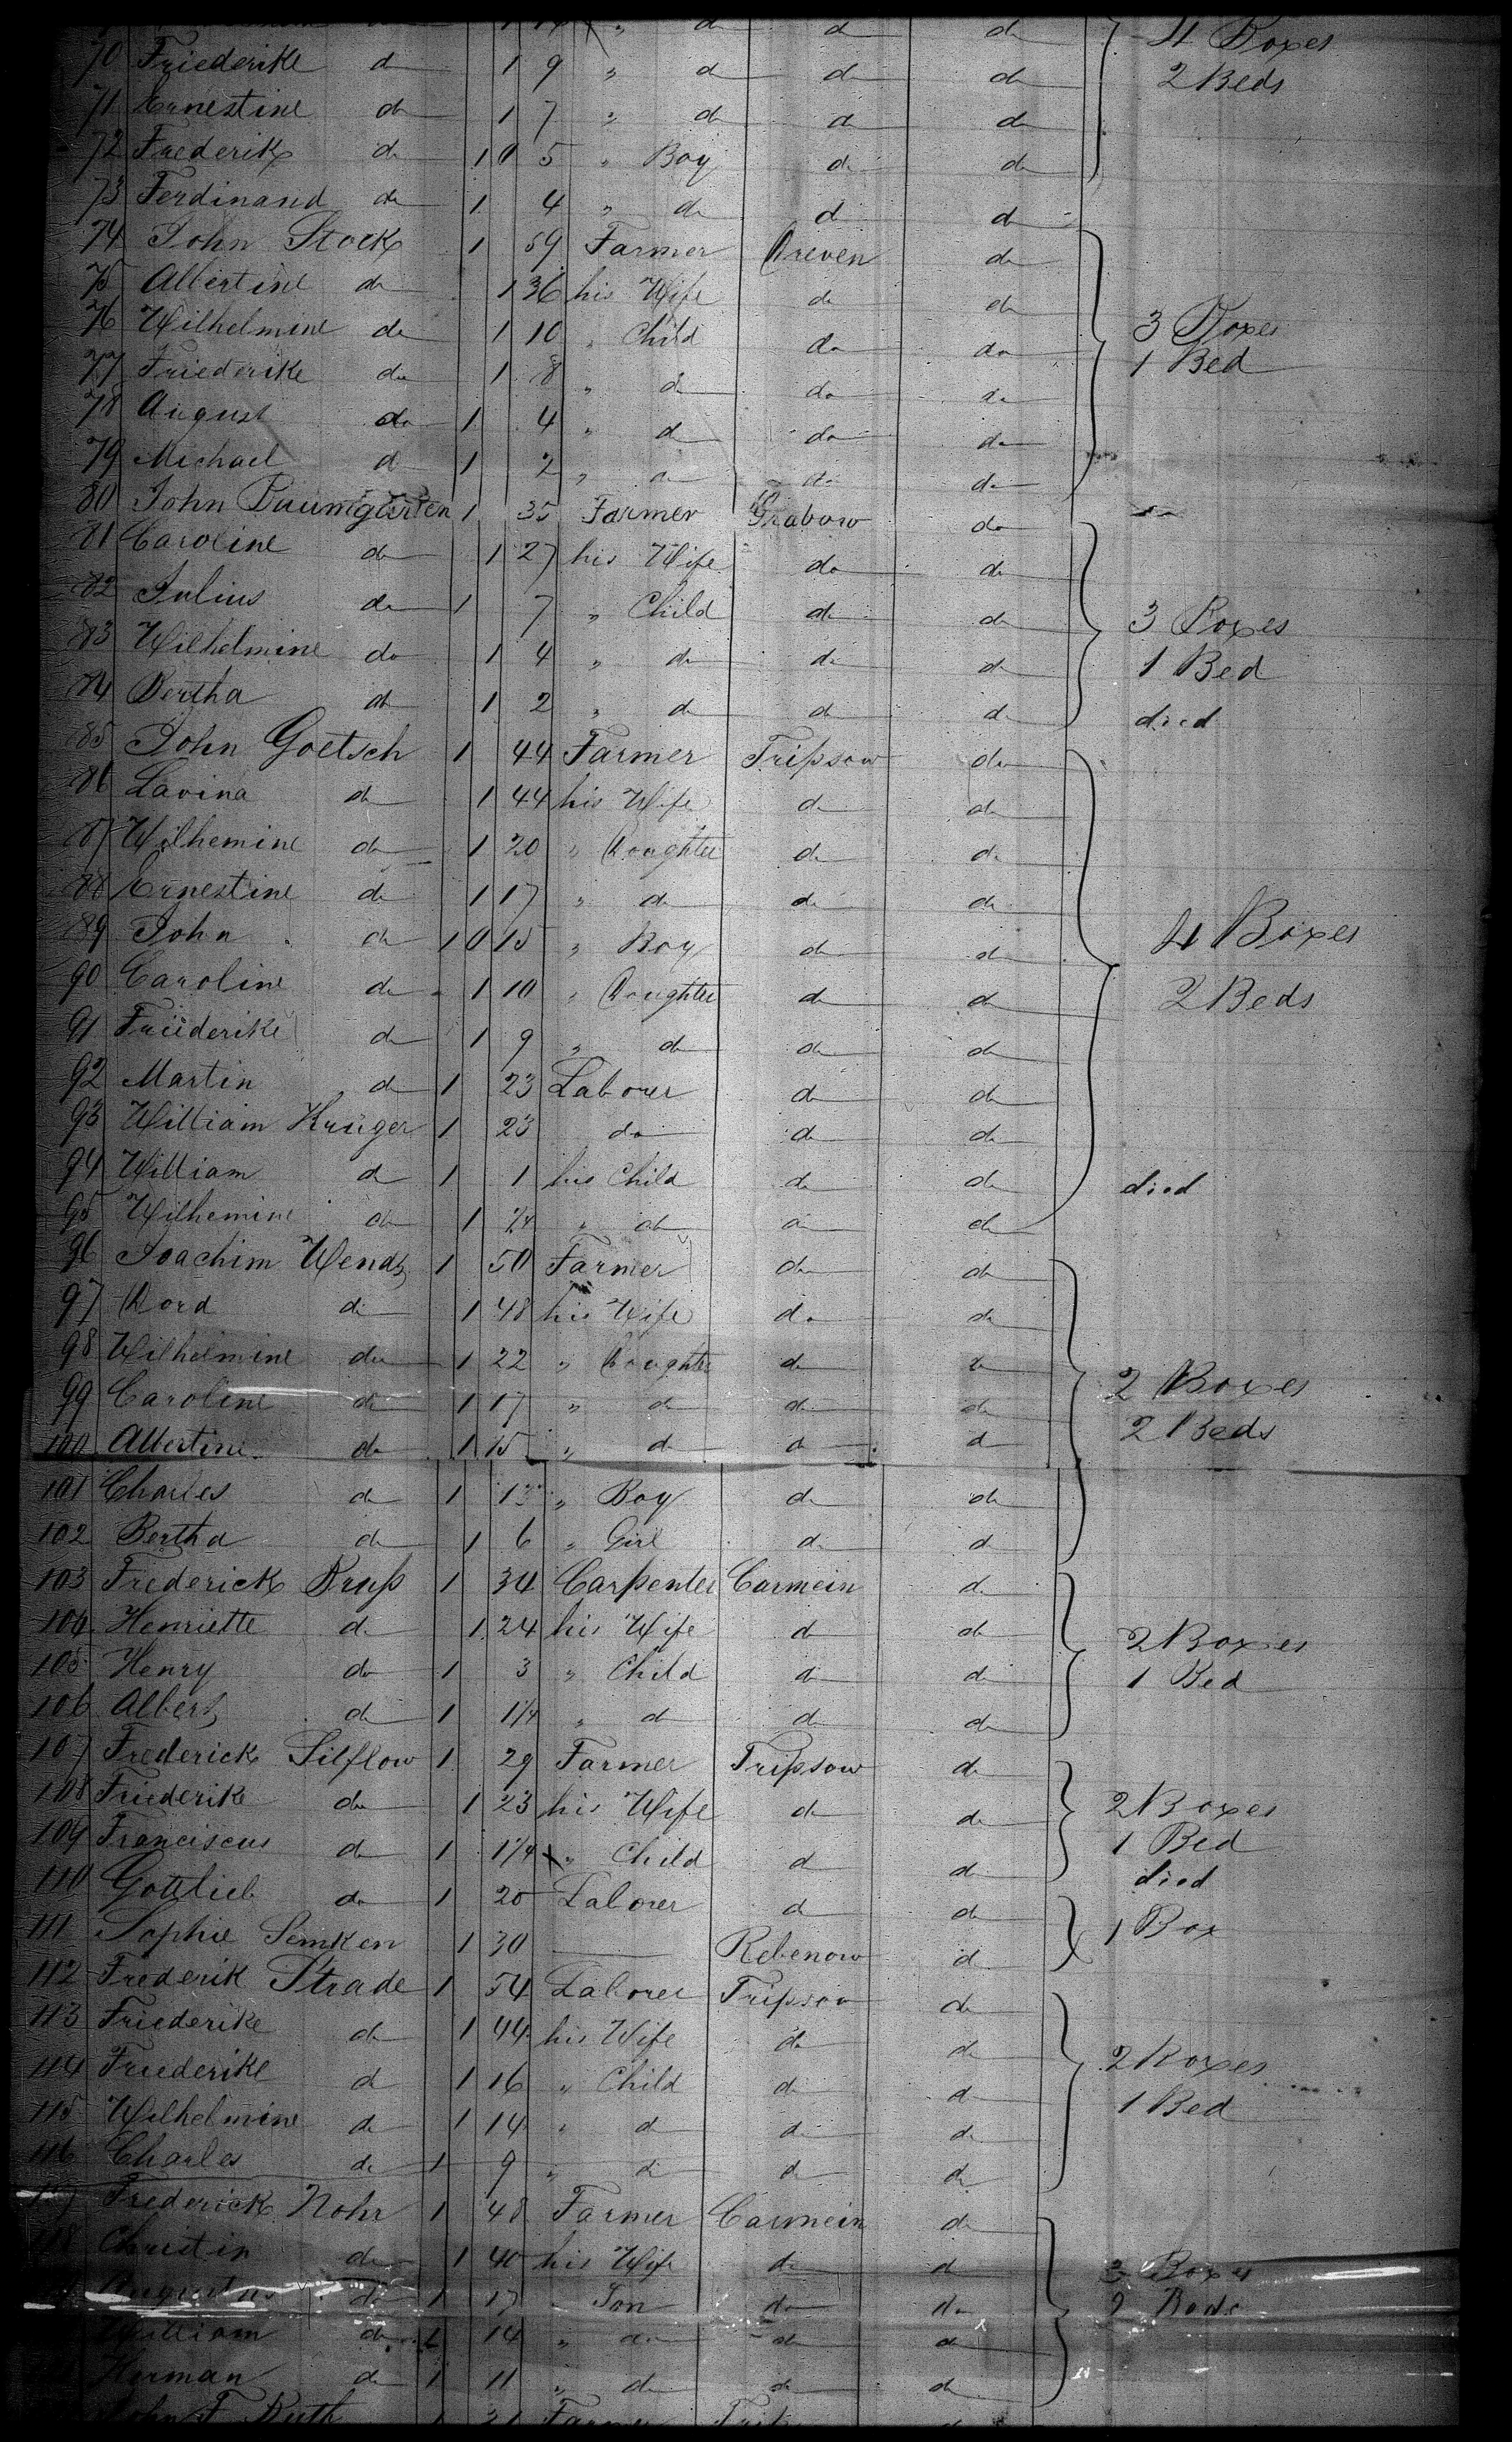 1 " d d d 4 Boxes
70 Friederike d 1 9 " d d d 2 Beds
71 Ernestine do 1 7 " do do do
72 Frederik do 1 5 " Boy do do
73 Ferdinand do 1 4 " do d d
74 John Stock 1 59 Farmer Dreven do
75 Albertine do 1 36 his Wife do do
76 Wilhelmine do 1 10 " Child do do 3 Boxes
77 Friederike do 1 8 " d do do 1 Bed
78 August do 1 4 " d do do
79 Michael d 1 2 " d do do
80 John Baumgarten 1 35 Farmer Grabow do
81 Caroline do 1 27 his Wife do do
82 Julius do 1 7 " Child do do 3 Boxes
83 Wilhelmine do 1 4 " do do d 1 Bed
84 Bertha do 1 2 " d d d died
85 John Goetsch 1 44 Farmer Tripsow do
86 Lavina do 1 44 his Wife d do
87 Wilhemine do 1 20 " Doughter do do
88 Ernestine do 1 17 " d do do
89 John do 1 15 " Boy do do 4 Boxes
90 Caroline do 1 10 " Doughter do do 2 Beds
91 Friederike do 1 9 " do do do
92 Martin d 1 23 Laborer do do
93 William Krüger 1 23 do do do
94 William d 1 1 his Child do do died
95 Wilhemine do 1 1/4 " do d do
96 Joachim Wendt 1 50 Farmer do do
97 Dord do 1 48 his Wife do do
98 Wilhelmine do 1 22 " Doughter do 2 Boxes
99 Caroline do 1 17 " d do do 2 Beds
100 Albertine do 1 15 " d d d
101 Charles do 1 13 " Boy do do
102 Bertha do 1 6 " Girl do d
103 Frederick Bruß 1 34 Carpenter Carmein d
104 Henriette d 1 24 his Wife d do 2 Boxes
105 Henry do 1 3 " Child d do 1 Bed
106 Albert do 1 1/4 " d do do
107 Frederick Silflow 1 29 Farmer Tripsow do
108 Friederike do 1 23 his Wife do do 2 Boxes
109 Franciscus do 1 1/4 " Child d d 1 Bed died
110 Gottlieb do 1 20 Laborer d do 1 Box
111 Sophie Lemken 1 30 Rebenow d
112 Frederik Strade 1 54 Laborer Tripsow do
113 Friederike do 1 44 his Wife do do 2 Boxes
114 Friederike d 1 16 " Child d d 1 Bed
115 Wilhelmine do 1 14 " d do do
116 Charles do 1 9 " d do do
117 Frederick Nohr 1 48 Farmer Carmein do
118 Christin do 1 40 his Wife do d 3 Boxes
Augustus do 1 17 " Son do do 2 Beds
William do 1 14 " do do d
Herman do 1 11 " d do do
John F. Ruth 1 Farmer